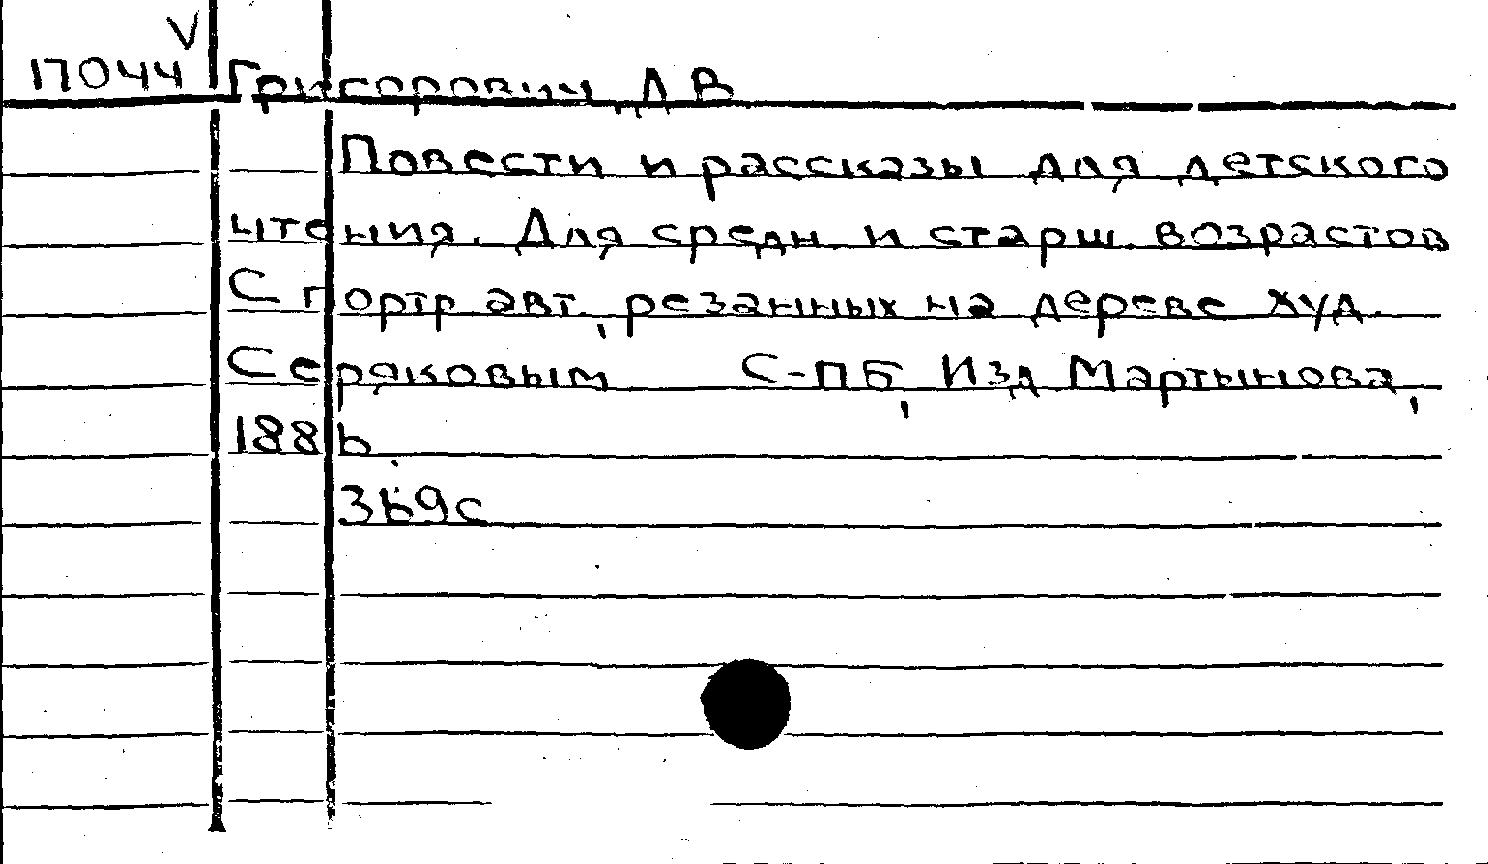 V
17044 Григорович, Д В
Повести и рассказы для детского
чтения. Для средн. и старш. возрастов
С портр авт., резанных на дереве худ.
Серяковым С-ПБ, Изд Мартынова,
1886.
369с